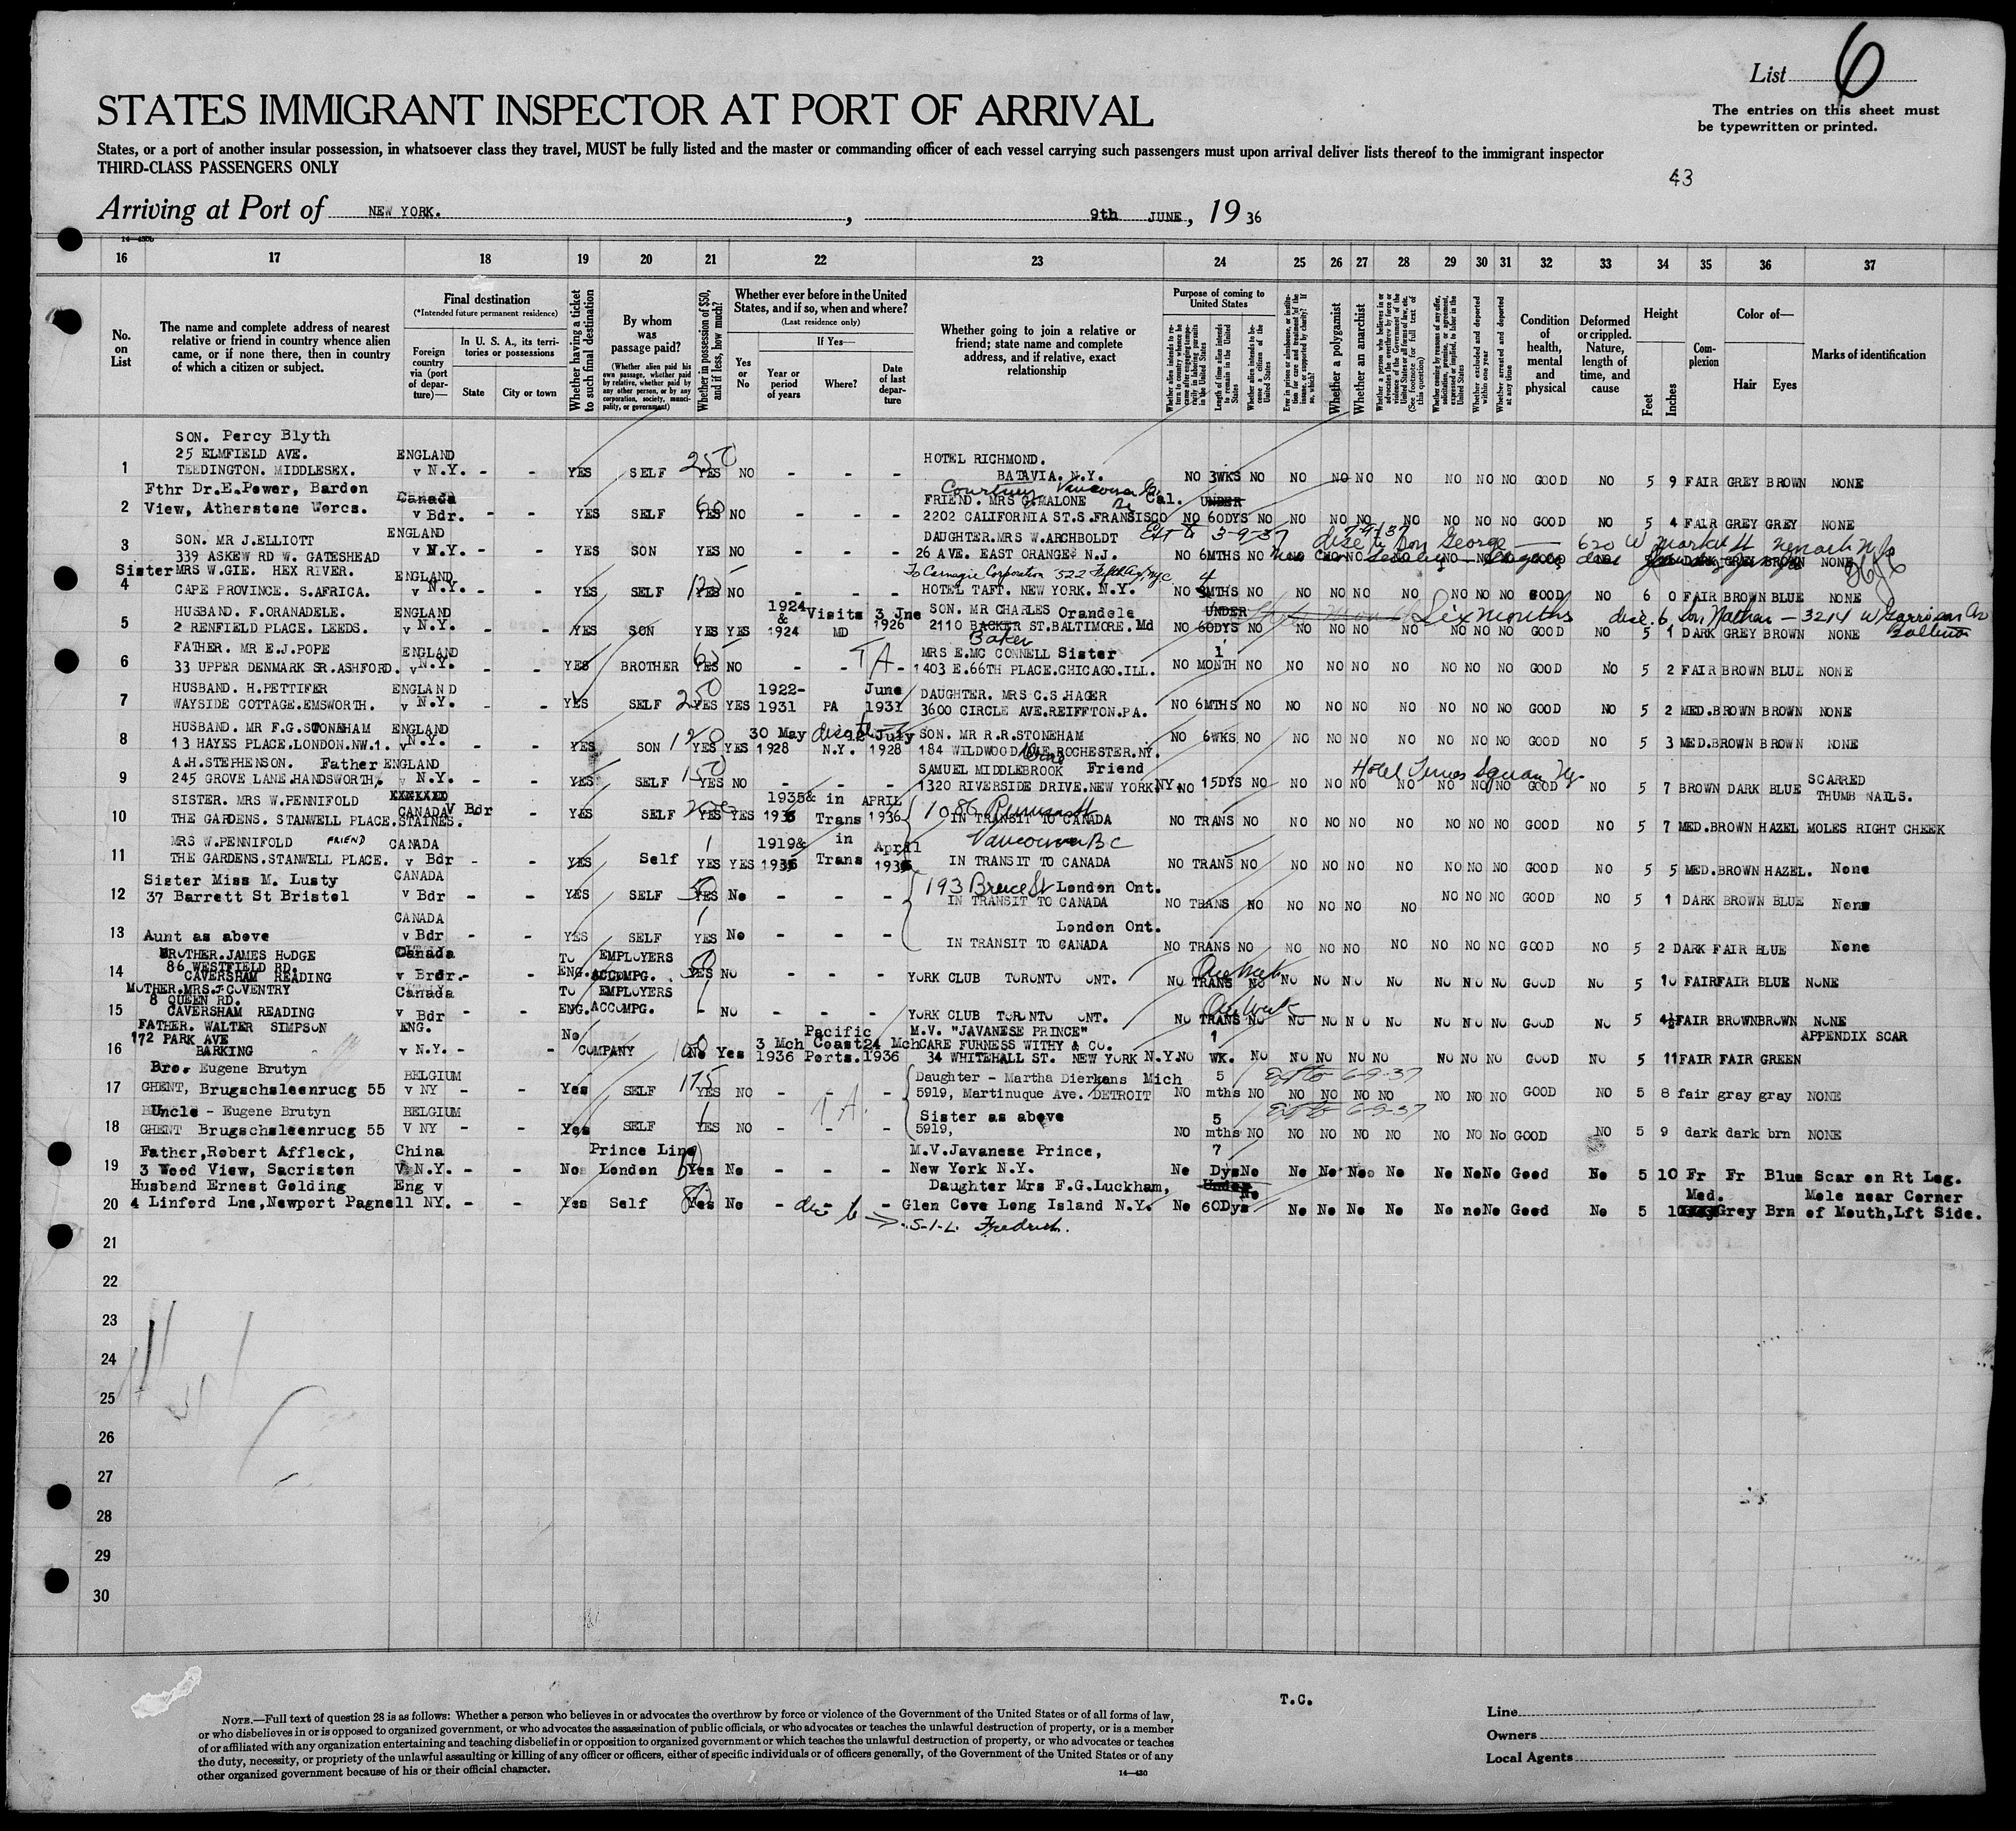 List 6
The entries on this sheet must
be typewritten or printed.
STATES IMMIGRANT INSPECTOR AT PORT OF ARRIVAL
States, or a port of another insular possession, in whatsoever class they travel, MUST be fully listed and the master or commanding officer of each vessel carrying such passengers must upon arrival deliver lists thereof to the immigrant inspector
THIRD-CLASS PASSENGERS ONLY
43
Arriving at Port of NEW YORK. , 9th JUNE, 19 36
16 17 18 19 20 21 22 23 24 25 26 27 28 29 30 31 32 33 34 35 36 37
No. on List
The name and complete address of nearest relative or friend in country whence alien came, or if none there, then in country of which a citizen or subject.
Final destination
(*Intended future permanent residence)
Foreign country via (port of departure)—
In U. S. A., its territories or possessions
State
City or town
Whether having a ticket to such final destination
By whom was passage paid?
(Whether alien paid his own passage, whether paid by relative, whether paid by any other person, or by any corporation, society, municipality, or government)
Whether in possession of $50, and if less, how much?
Whether ever before in the United States, and if so, when and where?
(Last residence only)
Yes or No
If Yes—
Year or period of years
Where?
Date of last departure
Whether going to join a relative or friend; state name and complete address, and if relative, exact relationship
Purpose of coming to United States
Whether a polygamist
Whether an anarchist
Condition of health, mental and physical
Deformed or crippled. Nature, length of time, and cause
Height
Feet Inches
Complexion
Color of—
Hair Eyes
Marks of identification
SON. Percy Blyth
25 ELMFIELD AVE. ENGLAND HOTEL RICHMOND.
1 TEDDINGTON. MIDDLESEX. v N.Y. - - YES SELF 250 YES NO - - - BATAVIA. N.Y. NO 3WKS NO NO NO NO NO NO NO NO GOOD NO 5 9 FAIR GREY BROWN NONE
Fthr Dr.E.Power, Bardon Canada Courtney Vancouver Cal. UNDER
2 View, Atherstone Worcs. v Bdr. - - YES SELF 60 YES NO - - - FRIEND. MRS G.MALONE
2202 CALIFORNIA ST.S.FRANSISCO NO 60DYS NO NO NO NO NO NO NO NO GOOD NO 5 4 FAIR GREY GREY NONE
SON. MR J.ELLIOTT ENGLAND DAUGHTER.MRS W.ARCHBOLDT Ext to 3-9-37 disc to Son George — 620 W Market St Newark NJ
3 339 ASKEW RD W. GATESHEAD v N.Y. - - YES SON YES NO - - - 26 AVE. EAST ORANGE. N.J. NO 6MTHS NO DARK GREY BROWN NONE
Sister MRS W.GIE. HEX RIVER. ENGLAND To Carnegie Corporation 522 Fifth Av, NYC 4
4 CAPE PROVINCE. S.AFRICA. v N.Y. - - YES SELF 125 YES NO - - - HOTEL TAFT. NEW YORK. N.Y. NO MTHS NO NO NO NO NO NO NO NO GOOD NO 6 0 FAIR BROWN BLUE NONE
HUSBAND. F.ORANADELE. ENGLAND 1924 & Visits 3 Jne SON. MR CHARLES Orandele UNDER Six months disc. to Son Nathan — 3214 W Garrison Av
5 2 RENFIELD PLACE. LEEDS. v N.Y. - - YES SON YES YES 1924 MD 1926 2110 BACKER ST.BALTIMORE. Md Baker NO 60DYS NO NO NO NO NO NO NO NO GOOD NO 5 1 DARK GREY BROWN NONE
FATHER. MR E.J.POPE ENGLAND 65 MRS E.MC CONNELL Sister 1
6 33 UPPER DENMARK SR.ASHFORD. v N.Y. - - YES BROTHER YES NO - - - 1403 E.66TH PLACE.CHICAGO.ILL. NO MONTH NO NO NO NO NO NO NO NO GOOD NO 5 2 FAIR BROWN BLUE NONE
HUSBAND. H.PETTIFER ENGLAND 250 1922- June DAUGHTER. MRS C.S.HAGER
7 WAYSIDE COTTAGE.EMSWORTH. v N.Y. - - YES SELF YES YES 1931 PA 1931 3600 CIRCLE AVE.REIFFTON.PA. NO 6MTHS NO NO NO NO NO NO NO NO GOOD NO 5 2 MED.BROWN BROWN NONE
HUSBAND. MR F.G.STONEHAM ENGLAND 30 May disc to 12 July SON. MR R.R.STONEHAM
8 13 HAYES PLACE.LONDON.NW.1. v N.Y. - - YES SON 120 YES YES 1928 N.Y. 1928 184 WILDWOOD AVE.ROCHESTER.NY. NO 6WKS. NO NO NO NO NO NO NO NO GOOD NO 5 3 MED.BROWN BROWN NONE
A.H.STEPHENSON. Father ENGLAND 150 SAMUEL MIDDLEBROOK Friend Hotel Times Square Ny. SCARRED
9 245 GROVE LANE.HANDSWORTH. v N.Y. - - YES SELF YES NO - - - 1320 RIVERSIDE DRIVE.NEW YORK NY. NO 15DYS NO NO NO NO NO NO NO NO GOOD NO 5 7 BROWN DARK BLUE THUMB NAILS.
SISTER. MRS W.PENNIFOLD CANADA v Bdr 1935& in APRIL 1086
10 THE GARDENS. STANWELL PLACE.STAINES. - YES SELF YES YES 1936 Trans 1936 IN TRANSIT TO CANADA NO TRANS NO NO NO NO NO NO NO NO GOOD NO 5 7 MED.BROWN HAZEL MOLES RIGHT CHEEK
MRS W.PENNIFOLD FRIEND CANADA 1919& in April Vancouver BC
11 THE GARDENS.STANWELL PLACE. v Bdr - - YES Self YES YES 1936 Trans 1936 IN TRANSIT TO CANADA NO TRANS NO NO NO NO NO NO NO NO GOOD NO 5 5 MED.BROWN HAZEL. None
Sister Miss M. Lusty CANADA 193 Bruce St London Ont.
12 37 Barrett St Bristol v Bdr - - YES SELF 50 YES No - - - IN TRANSIT TO CANADA NO TRANS NO NO NO NO NO NO NO NO GOOD NO 5 1 DARK BROWN BLUE None
CANADA London Ont.
13 Aunt as above v Bdr - - YES SELF YES No - - - IN TRANSIT TO CANADA NO TRANS NO NO NO NO NO NO NO NO GOOD NO 5 2 DARK FAIR BLUE None
BROTHER.JAMES HODGE Canada TO EMPLOYERS
86 WESTFIELD RD. 50 One Week
14 CAVERSHAM READING v Brdr. - - ENG. ACCOMPG. YES NO - - - YORK CLUB TORONTO ONT. NO TRANS NO NO NO NO NO NO NO NO GOOD NO 5 10 FAIR FAIR BLUE NONE
MOTHER.MRS.J.COVENTRY Canada TO EMPLOYERS
8 QUEEN RD. One Week
15 CAVERSHAM READING v Bdr - - ENG. ACCOMPG. - NO - - - YORK CLUB TORONTO ONT. NO TRANS NO NO NO NO NO NO NO NO GOOD NO 5 4½ FAIR BROWN BROWN NONE
FATHER. WALTER SIMPSON ENG. No Pacific M.V. "JAVANESE PRINCE" 1 APPENDIX SCAR
172 PARK AVE 3 Mch Coast 24 Mch CARE FURNESS WITHY & CO.
16 BARKING v N.Y. - - COMPANY 100 No Yes 1936 Ports. 1936 34 WHITEHALL ST. NEW YORK N.Y. NO WK. NO NO NO NO NO NO NO NO GOOD NO 5 11 FAIR FAIR GREEN
Bro. Eugene Brutyn BELGIUM 175 Daughter - Martha Dierkens Mich 5 Ext to 6-9-37
17 GHENT, Brugschsleenrucg 55 v NY - - Yes SELF YES NO - - - 5919, Martinuque Ave. DETROIT NO mths NO NO NO NO NO NO NO NO GOOD NO 5 8 fair gray gray NONE
Uncle - Eugene Brutyn BELGIUM T.A. Sister as above 5 Ext to 6-9-37
18 GHENT Brugschsleenrucg 55 V NY - - Yes SELF YES NO - - 5919, NO mths NO NO NO NO NO NO NO No GOOD NO 5 9 dark dark brn NONE
Father,Robert Affleck, China Prince Line M.V.Javanese Prince, 7
19 3 Wood View, Sacriston V N.Y. - - No London Yes No - - - New York N.Y. No Dys No No No No No No No No Good No 5 10 Fr Fr Blue Scar on Rt Leg.
Husband Ernest Golding Eng v Daughter Mrs F.G.Luckham, Under Med. Mole near Corner
20 4 Linford Lne,Newport Pagnell NY. - - Yes Self 80 Yes No - - - Glen Cove Long Island N.Y. No 60Dys No No No No No No no No Good No 5 Grey Brn of Mouth,Lft Side.
disc to → S-I-L. Fredrick.
21
22
23
24
25
26
27
28
29
30
T.C.
NOTE.—Full text of question 28 is as follows: Whether a person who believes in or advocates the overthrow by force or violence of the Government of the United States or of all forms of law,
or who disbelieves in or is opposed to organized government, or who advocates the assassination of public officials, or who advocates or teaches the unlawful destruction of property, or is a member
of or affiliated with any organization entertaining and teaching disbelief in or opposition to organized government or which teaches the unlawful destruction of property, or who advocates or teaches
the duty, necessity, or propriety of the unlawful assaulting or killing of any officer or officers, either of specific individuals or of officers generally, of the Government of the United States or of any
other organized government because of his or their official character.
14—430
Line
Owners
Local Agents